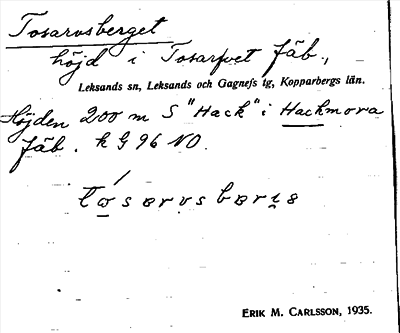 Tosarvsberget
höjd i Tosarfvet fäb.,
Leksands sn, Leksands och Gagnefs tg, Kopparbergs län.
Höjden 200 m S "Hack" i Hackmora
fäb. k G 96 NO.
ERIK M. CARLSSON, 1935.